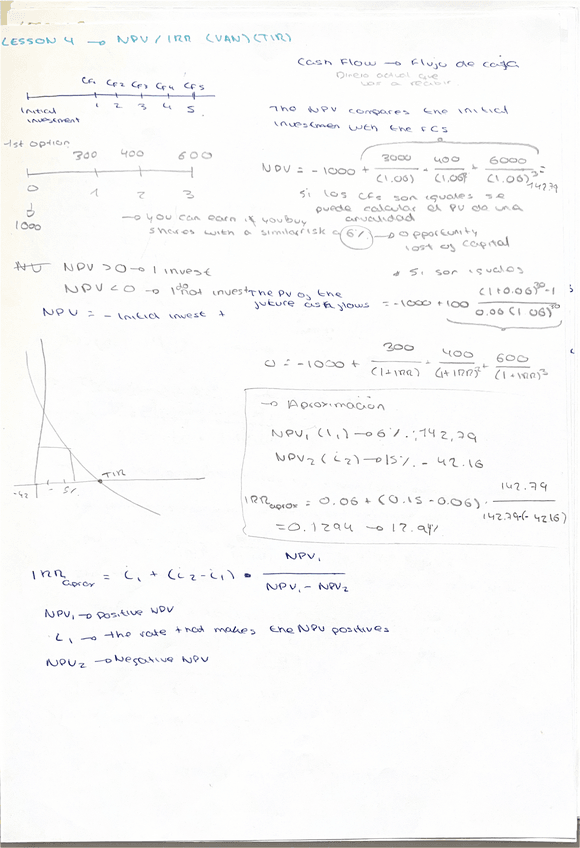 LESSON 4 → NPV/IRR (VAN)(TIR)
Cash Flow → Flujo de caja
CF1 CF2 CF3 CF4 CF5
1 2 3 4 5
Initial investment
The NPV compares the initial
investmen with the FCS
1st option
300 400 600
0 1 2 3
1000
NPV = -1000 + 3000/(1.06) + 400/(1.06)² + 6000/(1.06)³ = 142.79
Si los CFs son iguales se
puede calcular el PV de una
anualidad
→ you can earn if you buy
shares with a similar risk 6% → opportunity
cost of capital
NPV > 0 → I invest
NPV < 0 → I do not invest
* Si son iguales
NPV = - Initial invest + The PV of the future cash flows = -1000 + 100 (1+0.06)³⁰-1 / 0.06 (1.06)³⁰
0 = -1000 + 300/(1+IRR) + 400/(1+IRR)² + 600/(1+IRR)³
→ Aproximación
NPV₁ (i₁) → 6% : 142,79
NPV₂ (i₂) → 15% - 42.16
IRR aprox = 0.06 + (0.15 - 0.06) · 142.79 / 142.79-(-42.16)
= 0.1294 → 12.94%
TIR
-42 5%
IRR aprox = i₁ + (i₂ - i₁) • NPV₁ / NPV₁ - NPV₂
NPV₁ → positive NPV
i₁ → the rate that makes the NPV positives
NPV₂ → Negative NPV